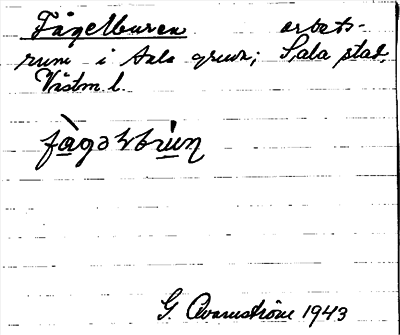 Fågelburen arbets-
rum i Sala gruva; Sala stad,
Västm l.
G. Qvarnström 1943